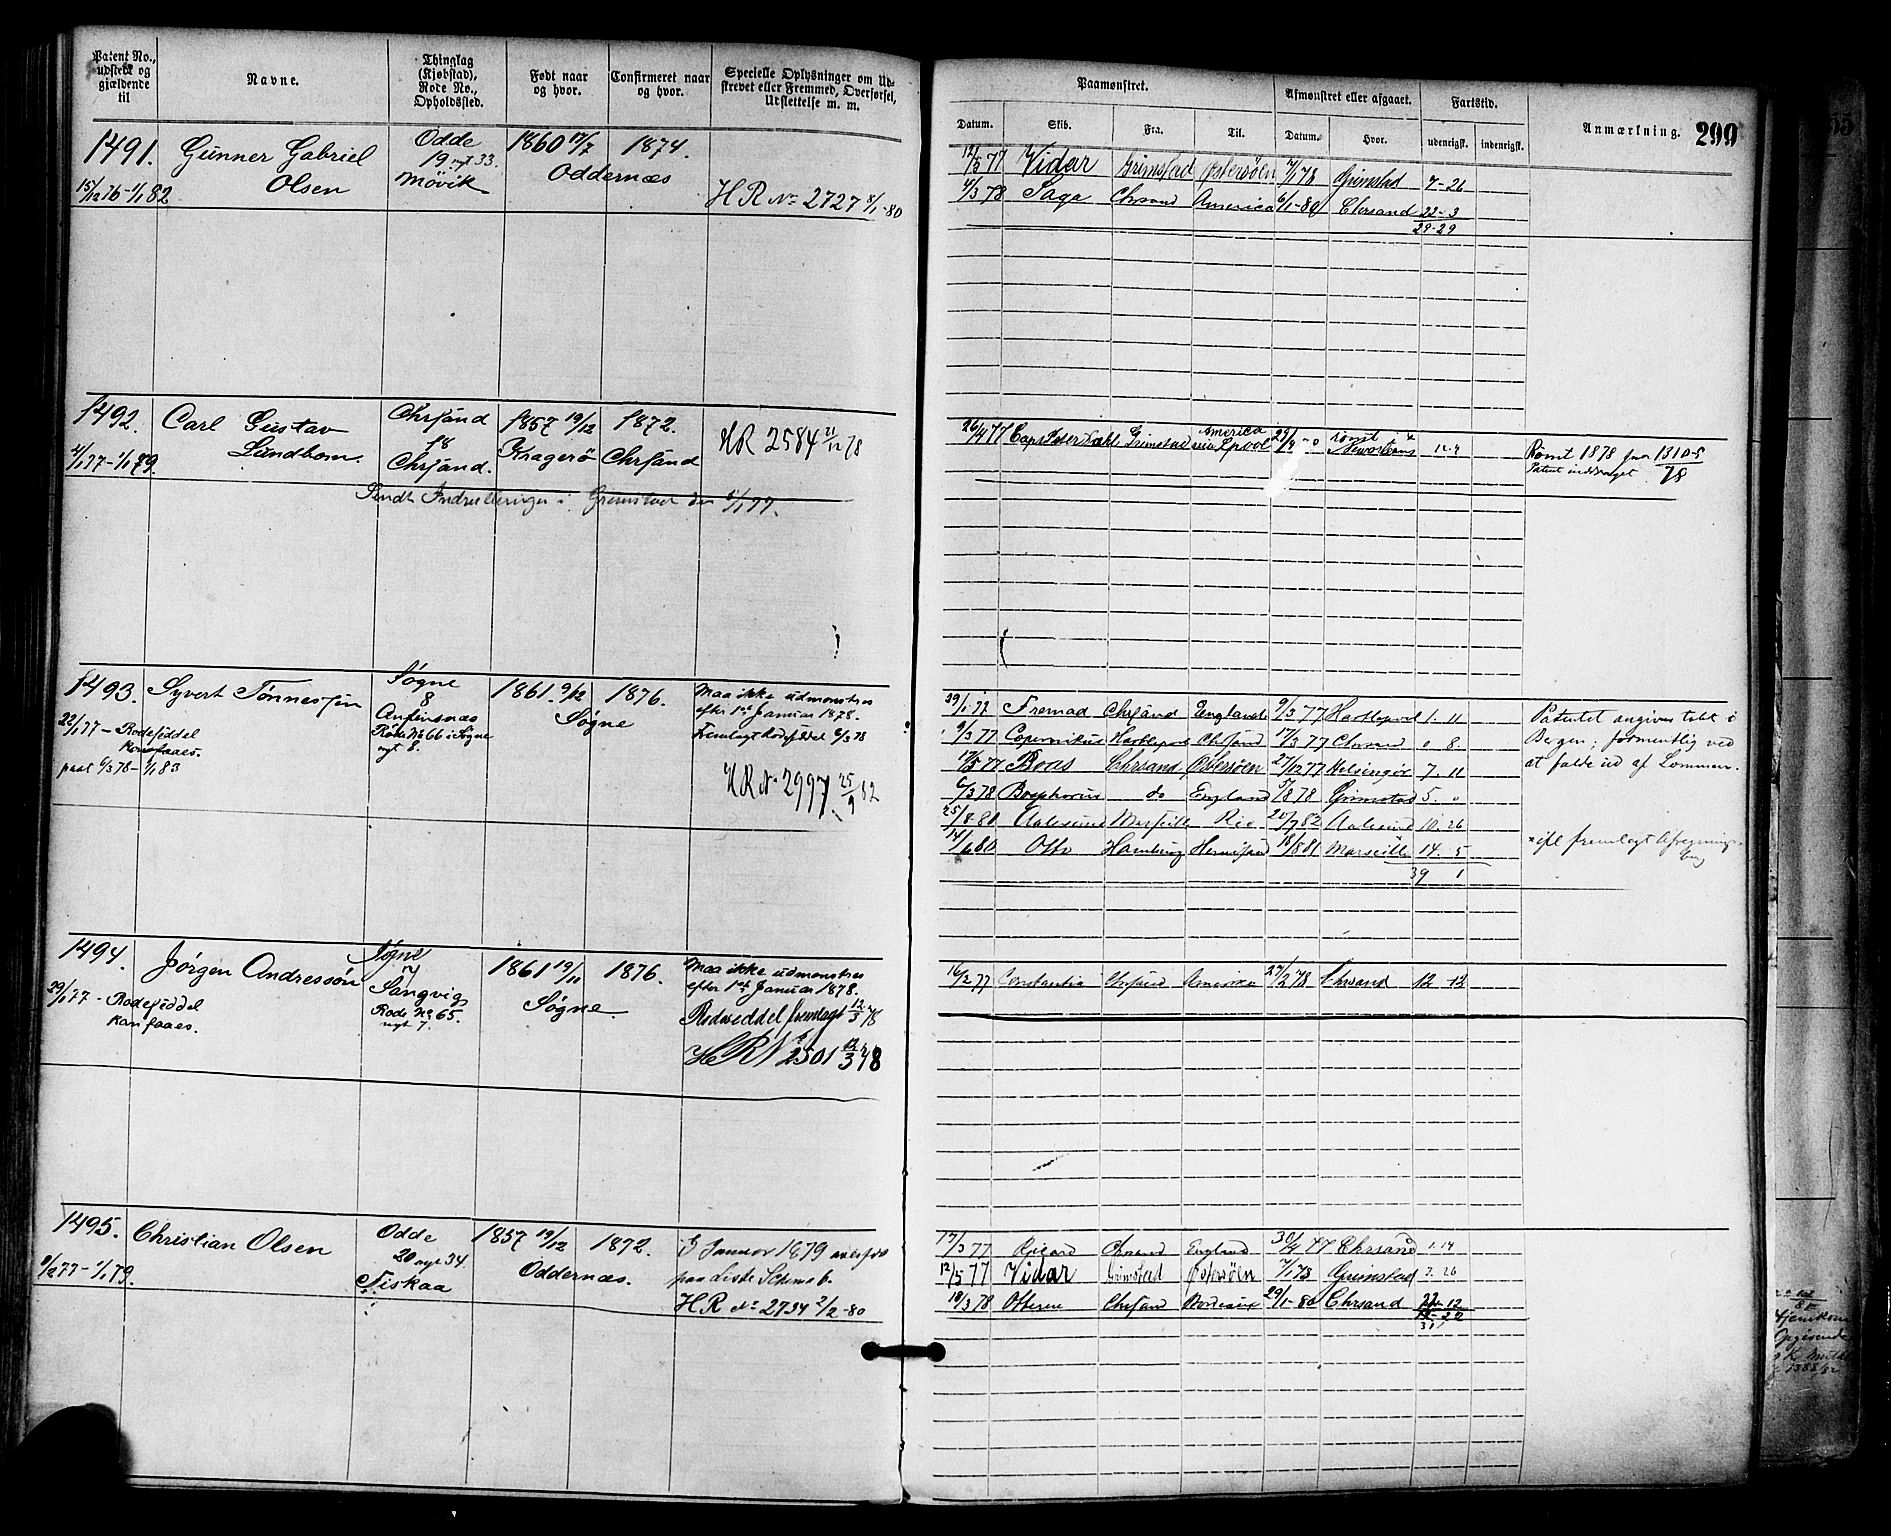 Patent No., udstedt og gjældende til
Navne.
Thinglag (Kjøbstad), Rode No., Opholdssted.
Født naar og hvor.
Confirmeret naar og hvor.
Specielle Oplysninger om Udstrevet eller Fremmed, Overførsel, Udslettelse m. m.
Paamønstret.
Afmønstret eller afgaaet.
Fartstid.
Anmærkning.
299
Datum.
Skib.
Fra.
Til.
Datum.
Hvor.
udenrigsk.
indenrigsk.
1491.
Gunner Gabriel
Olsen
15/12 76-1/1 82
Odde
19 nyt 33.
Møvik
1860 17/7
1874.
Oddernæs
HR No 2727 8/1-80
12/5 77 Vidar Grimstad Østersøen 7/1 78 Grimstad 7-26
4/3 78 Saga Chrsand America 6/1-80 Chrsand 22-3
29-29
1492.
Carl Gustav
Lundhom.
4/1 77-1/1 79.
Chrsand
18
Chrsand.
1857 19/12
Kragerø
1872.
Chrsand
HR 2584 21/12 78
Sendt Indrulleringen i Grimstad den 5/1 77.
26/4 77 Capt Peter Dahl Grimstad America via Lpool rømt Neworleans 12-9
Rømt 1878 Jnr 1310-5/78
Patent inddraget
1493.
Syvert Tønnessen
22/1 77 - Rodeseddel
kan faaes.
paat 6/3 78-1/1 83
Søgne
8
Anfinsnæs
Rode No 66 i Søgne
nyt 8.
1861. 9/12
1876.
Søgne
Maa ikke udmønstres
efter 1ste Januar 1878.
Fremlagt Rodeseddel 6/3 78
HR No 2997. 25/9 82
29/1 77 Fremad Chrsand England 9/3 77 Hartlepool 1. 11
9/3 77 Copernikus Hartlepool Chrsand 17/3 77 Chrsand 0 8.
17/5 77 Boas Chrsand Østersøen 27/12 77 Helsingør 7. 11
6/3 78 Bosphorus do England 5/8 78 Grimstad 5. 0
25/8 80 Aalesund Marseille Rio 20/7 82 Aalesund 10. 26
14/6 80 Otto Hamburg Hernøsand 18/8 81 Marseille 14. 5
39 1
Patentet angives tabt i
Bergen, formentlig ved
at falde ud af Lommen.
ifl fremlagt Afregnings-
bog
1494.
Jørgen Andressøn
29/1 77 - Rodeseddel
kan faaes.
Søgne
7
Langvig
Rode No 65.
nyt 7
1861 19/11
1876.
Søgne.
Maa ikke udmønstres
efter 1ste Januar 1878.
Rodeseddel fremlagt 12/3 78
HR No 2501 12/3 78
16/2 77 Constantia Chrsand Amerika 27/2 78 Chrsand 12 - 12
1495.
Christian Olsen
9/2 77-1/1 79.
Odde
20 nyt 34.
Fiskaa
1857 19/12
1872.
Oddernæs.
I Januar 1879 overført
paa Liste Schema b.
HR No 2734 2/2-80
17/3 77 Chrsand England 30/4 77 Chrsand 1. 14
12/5 77 Vidar Grimstad Østersøen 7/1 78 Grimstad 7. 26
18/3 78 Otterøe Chrsand Bordeaux 29/1-80 Chrsand 22-12